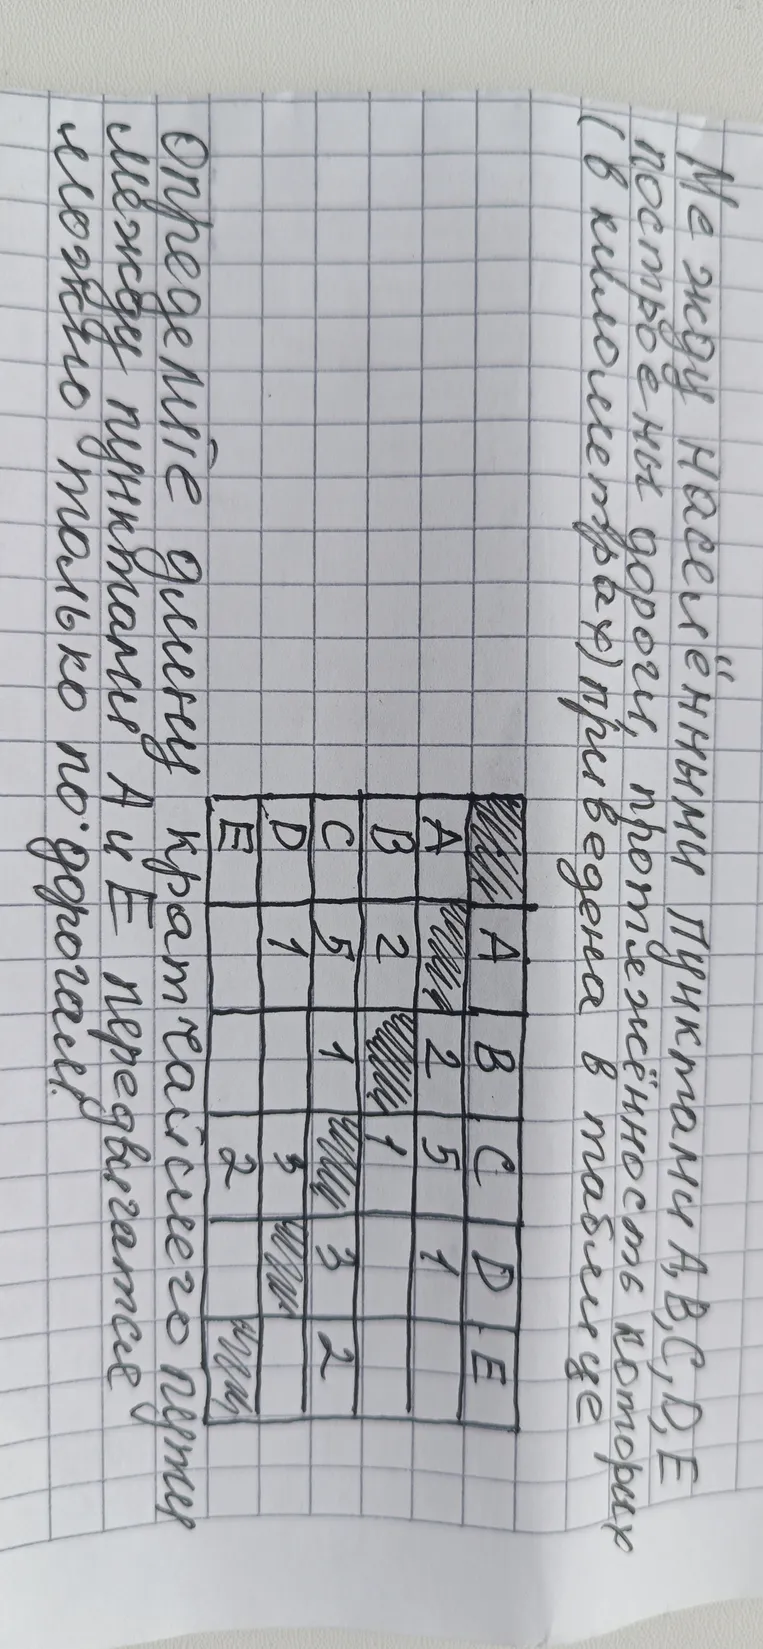 Между населёнными пунктами A, B, C, D, E
построены дороги, протяжённость которых
(в километрах) приведена в таблице
A B C D E
A 2 5 1
B 2 1
C 5 1 3 2
D 1 3
E 2
Определите длину кратчайшего пути
между пунктами A и E передвигаться
можно только по дорогам.